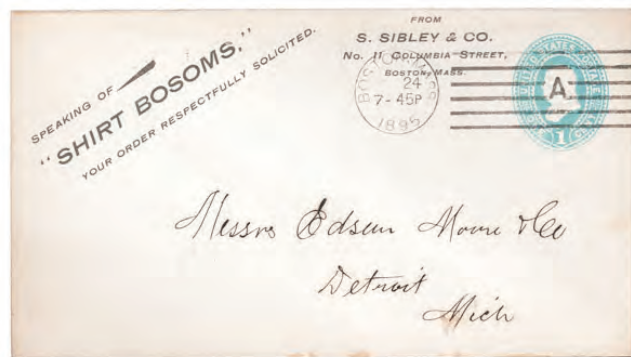 SPEAKING OF
"SHIRT BOSOMS."
YOUR ORDER RESPECTFULLY SOLICITED.
FROM
S. SIBLEY & CO.
No. 11 COLUMBIA STREET,
BOSTON, MASS.
BOSTON, MASS
24
7-45P
1895
UNITED STATES POSTAGE
A
1
Messrs Edson Moore & Co
Detroit
Mich